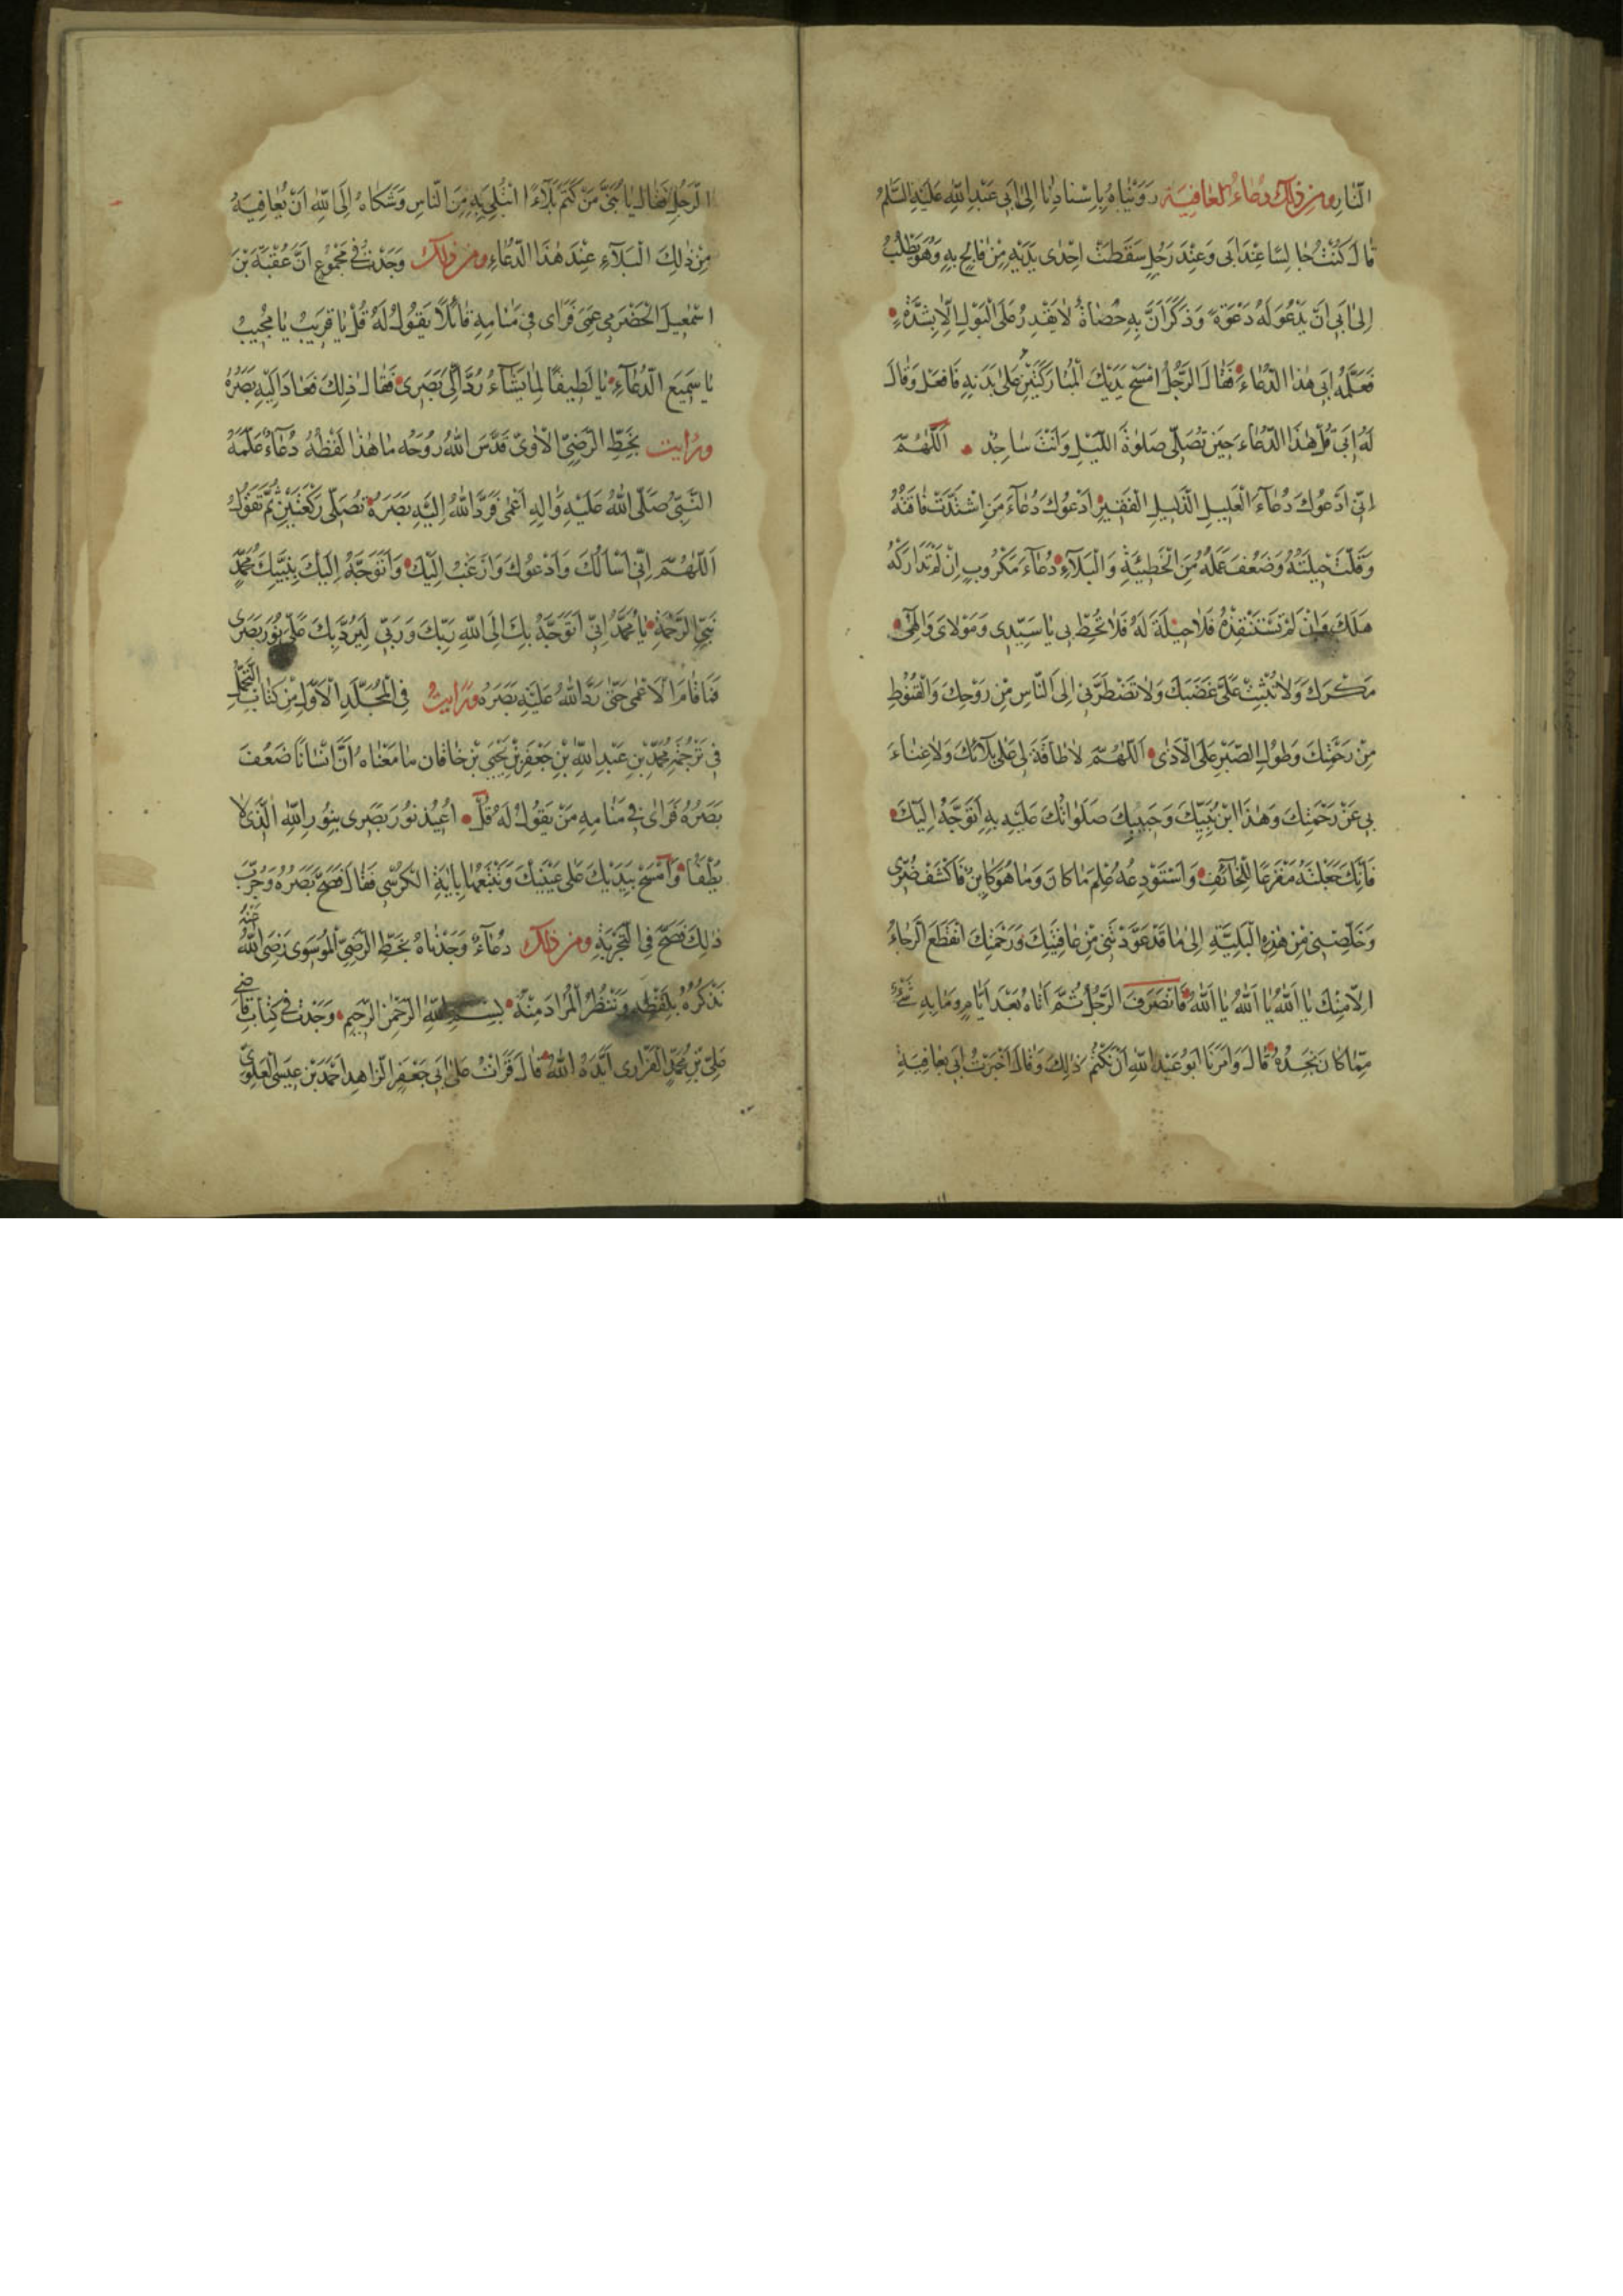 النّارِ ومن ذلك دعاء العافية رَوَيْنَاهُ بِاِسْنادِنا اِلىٰ اَبي عَبْدِ اللّٰهِ عَلَيْهِ السَّلٰمُ
قٰالَ كُنْتُ جٰالِسًا عِنْدَ اَبي وَعِنْدَ رَجُلٍ سَقَطَتْ اِحْدٰى يَدَيْهِ مِنْ فٰالِجٍ بِهِ وَهُوَ يَطْلُبُ
اِلىٰ اَبي اَنْ يَدْعُوَ لَهُ دَعْوَةً وَذَكَرَ اَنَّ بِهِ حَصٰاةً لٰا يَقْدِرُ عَلَى الْبَوْلِ اِلّٰا بِشِدَّةٍ
فَعَلَّمَهُ اَبي هٰذَا الدُّعٰاءَ فَقٰالَ الرَّجُلُ امْسَحْ يَدَيْكَ الْمُبٰارَكَتَيْنِ عَلىٰ بَدَنِهِ فَافْعَلْ وَقٰالَ
لَهُ اَبي قُلْ هٰذَا الدُّعٰاءَ حِينَ تُصَلّي صَلٰوةَ اللَّيْلِ وَاَنْتَ سٰاجِدٌ اَللّٰهُمَّ
اِنّي اَدْعُوكَ دُعٰاءَ الْعَلِيلِ الذَّلِيلِ الْفَقِيرِ اَدْعُوكَ دُعٰاءَ مَنِ اشْتَدَّتْ فٰاقَتُهُ
وَقَلَّتْ حِيلَتُهُ وَضَعُفَ عَمَلُهُ مِنَ الْخَطِيئَةِ وَالْبَلٰاءِ دُعٰاءَ مَكْرُوبٍ اِنْ لَمْ تَدٰارَكْهُ
هَلَكَ وَاِنْ لَمْ تَسْتَنْقِذْهُ فَلٰا حِيلَةَ لَهُ فَلٰا تُحِطْ بي يٰا سَيِّدي وَمَوْلٰايَ وَاِلٰهي
مَكْرَكَ وَلٰا تُثْبِتْ عَلَيَّ غَضَبَكَ وَلٰا تَضْطَرَّني اِلَى النّٰاسِ مِنْ رَوْحِكَ وَالْقُنُوطِ
مِنْ رَحْمَتِكَ وَطُولِ الصَّبْرِ عَلَى الْاَذٰى اَللّٰهُمَّ لٰا طٰاقَةَ لي عَلىٰ بَلٰائِكَ وَلٰا غِنٰاءَ
بي عَنْ رَحْمَتِكَ وَهٰذَا ابْنُ نَبِيِّكَ وَحَبِيبِكَ صَلَوٰاتُكَ عَلَيْهِ بِهِ اَتَوَجَّهُ اِلَيْكَ
فَاِنَّكَ جَعَلْتَهُ مَفْزَعًا لِلْخٰائِفِ وَاسْتَوْدَعْتَهُ عِلْمَ مٰا كٰانَ وَمٰا هُوَ كٰائِنٌ فَاكْشِفْ ضُرّي
وَخَلِّصْني مِنْ هٰذِهِ الْبَلِيَّةِ اِلىٰ مٰا قَدْ عَوَّدْتَني مِنْ عٰافِيَتِكَ وَرَحْمَتِكَ انْقَطَعَ الرَّجٰاءُ
اِلّٰا مِنْكَ يٰا اَللّٰهُ يٰا اَللّٰهُ يٰا اَللّٰهُ فَانْصَرَفَ الرَّجُلُ ثُمَّ اَتٰاهُ بَعْدَ اَيّٰامٍ وَمٰا بِهِ شَيْءٌ
مِمّٰا كٰانَ يَجِدُهُ قٰالَ وَاَمَرَنٰا اَبُو عَبْدِ اللّٰهِ اَنْ نَكْتُمَ ذٰلِكَ وَقٰالَ اَخْبَرْتُ اَبي بِعٰافِيَةِ
الرَّجُلِ فَقٰالَ يٰا بُنَيَّ مَنْ كَتَمَ بَلٰاءً ابْتُلِيَ بِهِ مِنَ النّٰاسِ وَشَكٰاهُ اِلَى اللّٰهِ اَنْ يُعٰافِيَهُ
مِنْ ذٰلِكَ الْبَلٰاءِ عِنْدَ هٰذَا الدُّعٰاءِ ومن ذلك وَجَدْتُ في مَجْمُوعٍ اَنَّ عُقْبَةَ بْنَ
اسْمٰعِيلَ الْحَضْرَمي عَمِيَ فَرَاٰى في مَنٰامِهِ قٰائِلًا يَقُولُ لَهُ قُلْ يٰا قَرِيبُ يٰا مُجِيبُ
يٰا سَمِيعَ الدُّعٰاءِ يٰا لَطِيفًا لِمٰا يَشٰاءُ رُدَّ اِلَيَّ بَصَري فَقٰالَ ذٰلِكَ فَعٰادَ اِلَيْهِ بَصَرُهُ
ورايت بِخَطِّ الرَّضِيِّ الْاٰوِيِّ قَدَّسَ اللّٰهُ رُوحَهُ مٰا هٰذٰا لَفْظُهُ دُعٰاءٌ عَلَّمَهُ
النَّبِيُّ صَلَّى اللّٰهُ عَلَيْهِ وَاٰلِهِ اَعْمٰى فَرَدَّ اللّٰهُ اِلَيْهِ بَصَرَهُ تُصَلّي رَكْعَتَيْنِ ثُمَّ تَقُولُ
اَللّٰهُمَّ اِنّي اَسْاَلُكَ وَاَدْعُوكَ وَاَرْغَبُ اِلَيْكَ وَاَتَوَجَّهُ اِلَيْكَ بِنَبِيِّكَ مُحَمَّدٍ
نَبِيِّ الرَّحْمَةِ يٰا مُحَمَّدُ اِنّي اَتَوَجَّهُ بِكَ اِلَى اللّٰهِ رَبِّكَ وَرَبّي لِيَرُدَّ بِكَ عَلَيَّ نُورَ بَصَري
فَمٰا قٰامَ الْاَعْمٰى حَتّٰى رَدَّ اللّٰهُ عَلَيْهِ بَصَرَهُ ورايت فِي الْمُجَلَّدِ الْاَوَّلِ مِنْ كِتٰابِ التَّجَمُّلِ
في تَرْجُمَةِ مُحَمَّدِ بْنِ عَبْدِ اللّٰهِ بْنِ جَعْفَرِ بْنِ يَحْيَى بْنِ خٰاقٰان مٰا مَعْنٰاهُ اَنَّ اِنْسٰانًا ضَعُفَ
بَصَرُهُ فَرَاٰى في مَنٰامِهِ مَنْ يَقُولُ لَهُ قُلْ اُعِيذُ نُورَ بَصَري بِنُورِ اللّٰهِ الَّذي لٰا
يُطْفَأُ وَامْسَحْ بِيَدَيْكَ عَلىٰ عَيْنَيْكَ وَتُتْبِعُهٰا بِاٰيَةِ الْكُرْسي فَقٰالَ فَصَحَّ بَصَرُهُ وَجُرِّبَ
ذٰلِكَ فَصَحَّ فِي التَّجْرِبَةِ ومن ذلك دُعٰاءٌ وَجَدْنٰاهُ بِخَطِّ الرَّضِيِّ الْمُوسَوي رَضِيَ اللّٰهُ عَنْهُ
نَذْكُرُهُ بِلَفْظِهِ وَتَنْظُرُ الْمُرٰادَ مِنْهُ بِسْمِ اللّٰهِ الرَّحْمٰنِ الرَّحِيمِ وَجَدْتُ في كِتٰابِ قٰاضي
عَلِيِّ بْنِ مُحَمَّدٍ الْفَزٰاري اَيَّدَهُ اللّٰهُ قٰالَ قَرَأْتُ عَلىٰ اَبي جَعْفَرٍ الزّٰاهِدِ اَحْمَدَ بْنِ عِيسَى الْعَلَوِيِّ